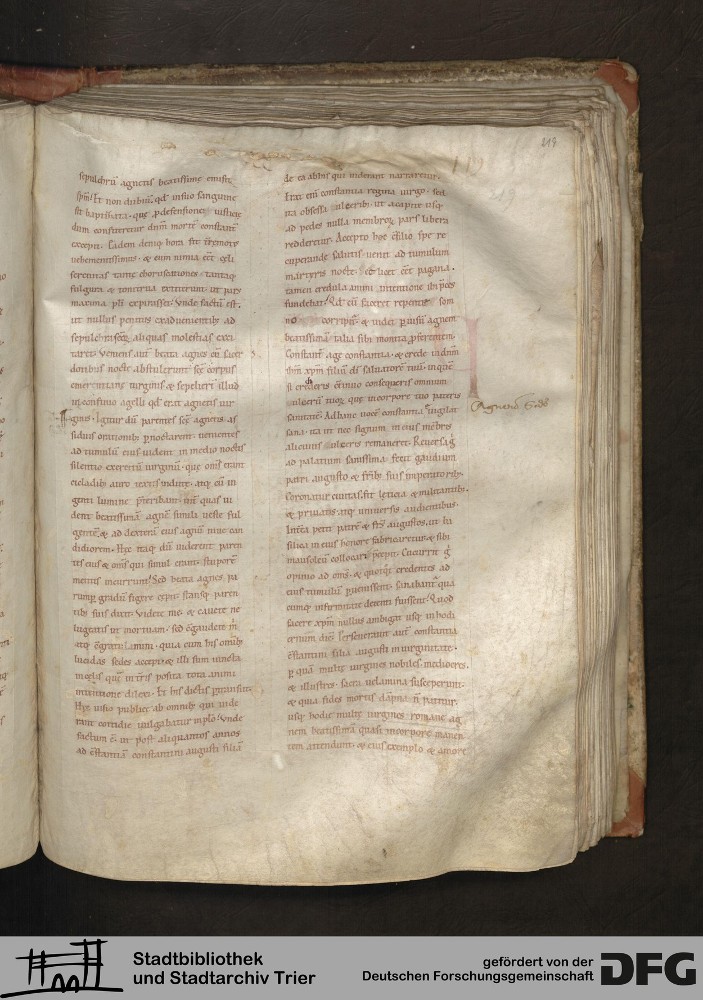 219
sepulchrũ agnetis beatissime emisit
sp̃m. Et non dubiũ qđ in suo sanguine
sit baptizata. que p defensione iusticie
dum confiteretur dnm morte constant̃
excepit. Eadem deniq; hora fit terremot'
uehementissimus. & cum nimia eēt celi
serenitas tante choruscationes. tantaq;
fulgura & tonitrua extiterunt ut pars
maxima pli expirasset. Vnde factũ est.
ut nullus penitus ex aduenientib; ad
sepulchra scõꝝ aliquas molestias exci
taret. Venientes aut̃ beate agnes cũ sacer
dotibus nocte abstulerunt scē corpus
emerentiane uirginis & sepeliert illud
in confinio agelli qđ erat agnetis uir
ginis. Igitur dũ parentes scē agnetis as
siduis orationib; pnoctarent. uenientes
ad tumulũ eius uident in medio noctis
silentio exercitũ uirginũ. que om̃s erant
cicladib; auro textis indute. atq; cũ in
genti lumine pteribant. int̃ quas ui
dent beatissimã agnē simili ueste ful
gentē. & ad dexterã eius agnũ niue can
didiorem. Hec itaq; dũ uiderent paren
tes eius & om̃s qui simul erant. stuporē
mentis incurrunt. Sed beata agnes pa
rump gradũ figere cepit. stansq; paren
tib; suis dixit. Videte ne & cauete ne
lugeatis ut mortuam. sed c̃gaudete m̃
atq; c̃gratulamini. quia cum his omib;
lucidas sedes accepi. & illi sum iuncta
in celis que in t̃ris posita tota animi
intentione dilexi. Et his dictis ptransiit.
Hec uisio publice ab omnib; qui uide
rant cottidie uulgabatur in plo. Vnde
factum ē. ut post aliquantos annos
ad c̃stantiã constantini augusti filiã
de ea ab his qui uiderant narraretur.
Erat eni constantia regina virgo. sed
ita obsessa ulcerib; ut a capite usq;
ad pedes nulla membroꝝ pars libera
redderetur. Accepto hoc c̃silio spe re
cuperande salutis. uenit ad tumulum
martyris nocte. & licet eēt pagana.
tamen credula animi intentione ibi pces
fundebat. Qđ cũ faceret repente som
no corripit. & uidet p uisũ agnem
beatissimã talia sibi monita pferentem.
Constant̃ age constantia. & crede in dnm
ihm xp̃m filiũ di saluatorē tuũ. in quē
si credderis c̃tinuo consequeris omnium
ulcerũ tuoꝝ que in corpore tuo pateris
sanitatē. Ad hanc uocē constantia euigilat
sana. ita ut nec signum in eius mēbris
alicuius ulceris remaneret. Reuersa g̃
ad palatium sanissima. fecit gaudium
patri augusto & fr̃ib; suis imperatorib;.
Coronatur ciuitas. fit leticia & militantib;.
& priuatis. atq; uniuersis audientibus.
Interea petit patrē & frs augustos. ut ba
silica in eius honore fabricaretur. & sibi
mausoleũ collocari pcepit. Cucurrit g̃
opinio ad om̃s. & quotq;t credentes ad
eius tumulũ puenissent. sanabant̃ qua
cumq; infirmitate detenti fuissent. Quod
facere xp̃m nullus ambigat usq; in hodi
ernum diē. Perseuerauit aut̃ constantia
c̃stantini filia augusti in uirginitate.
p quã multe uirgines nobiles. mediocres.
& illustres. sacra uelamina susceperunt.
& quia fides mortis dãpna ñ patitur.
usq; hodie multe uirgines romane ag
nem beatissimã quasi in corpore manen
tem attendunt. & eius exemplo & amore
Stadtbibliothek
und Stadtarchiv Trier
gefördert von der
Deutschen Forschungsgemeinschaft
DFG